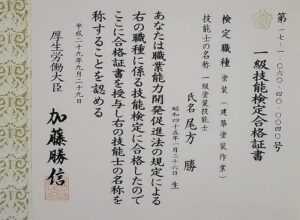 第一七-一-〇六〇-四〇-〇〇四〇号
一級技能検定合格証書
検定職種 塗装(建築塗装作業)
技能士の名称 一級塗装技能士
氏名 尾方 勝
昭和四十五年一月二十六日 生
あなたは職業能力開発促進法の規定による
右の職種に係る技能検定に合格したので
ここに合格証書を授与し右の技能士の名称を
称することを認める
平成二十九年九月二十九日
厚生労働大臣 加藤勝信